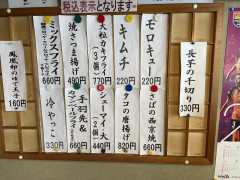 税込表示となります
長芋の千切り
330円
モロキュー
220円
キムチ
220円
大粒カキフライ
(3個)
770円
焼さつま揚げ
490円
ミックスフライ
660円
さばの西京焼
660円
タコの唐揚
820円
シューマイ・大
(2個)
440円
手羽先&
660円
冷やっこ
330円
160円